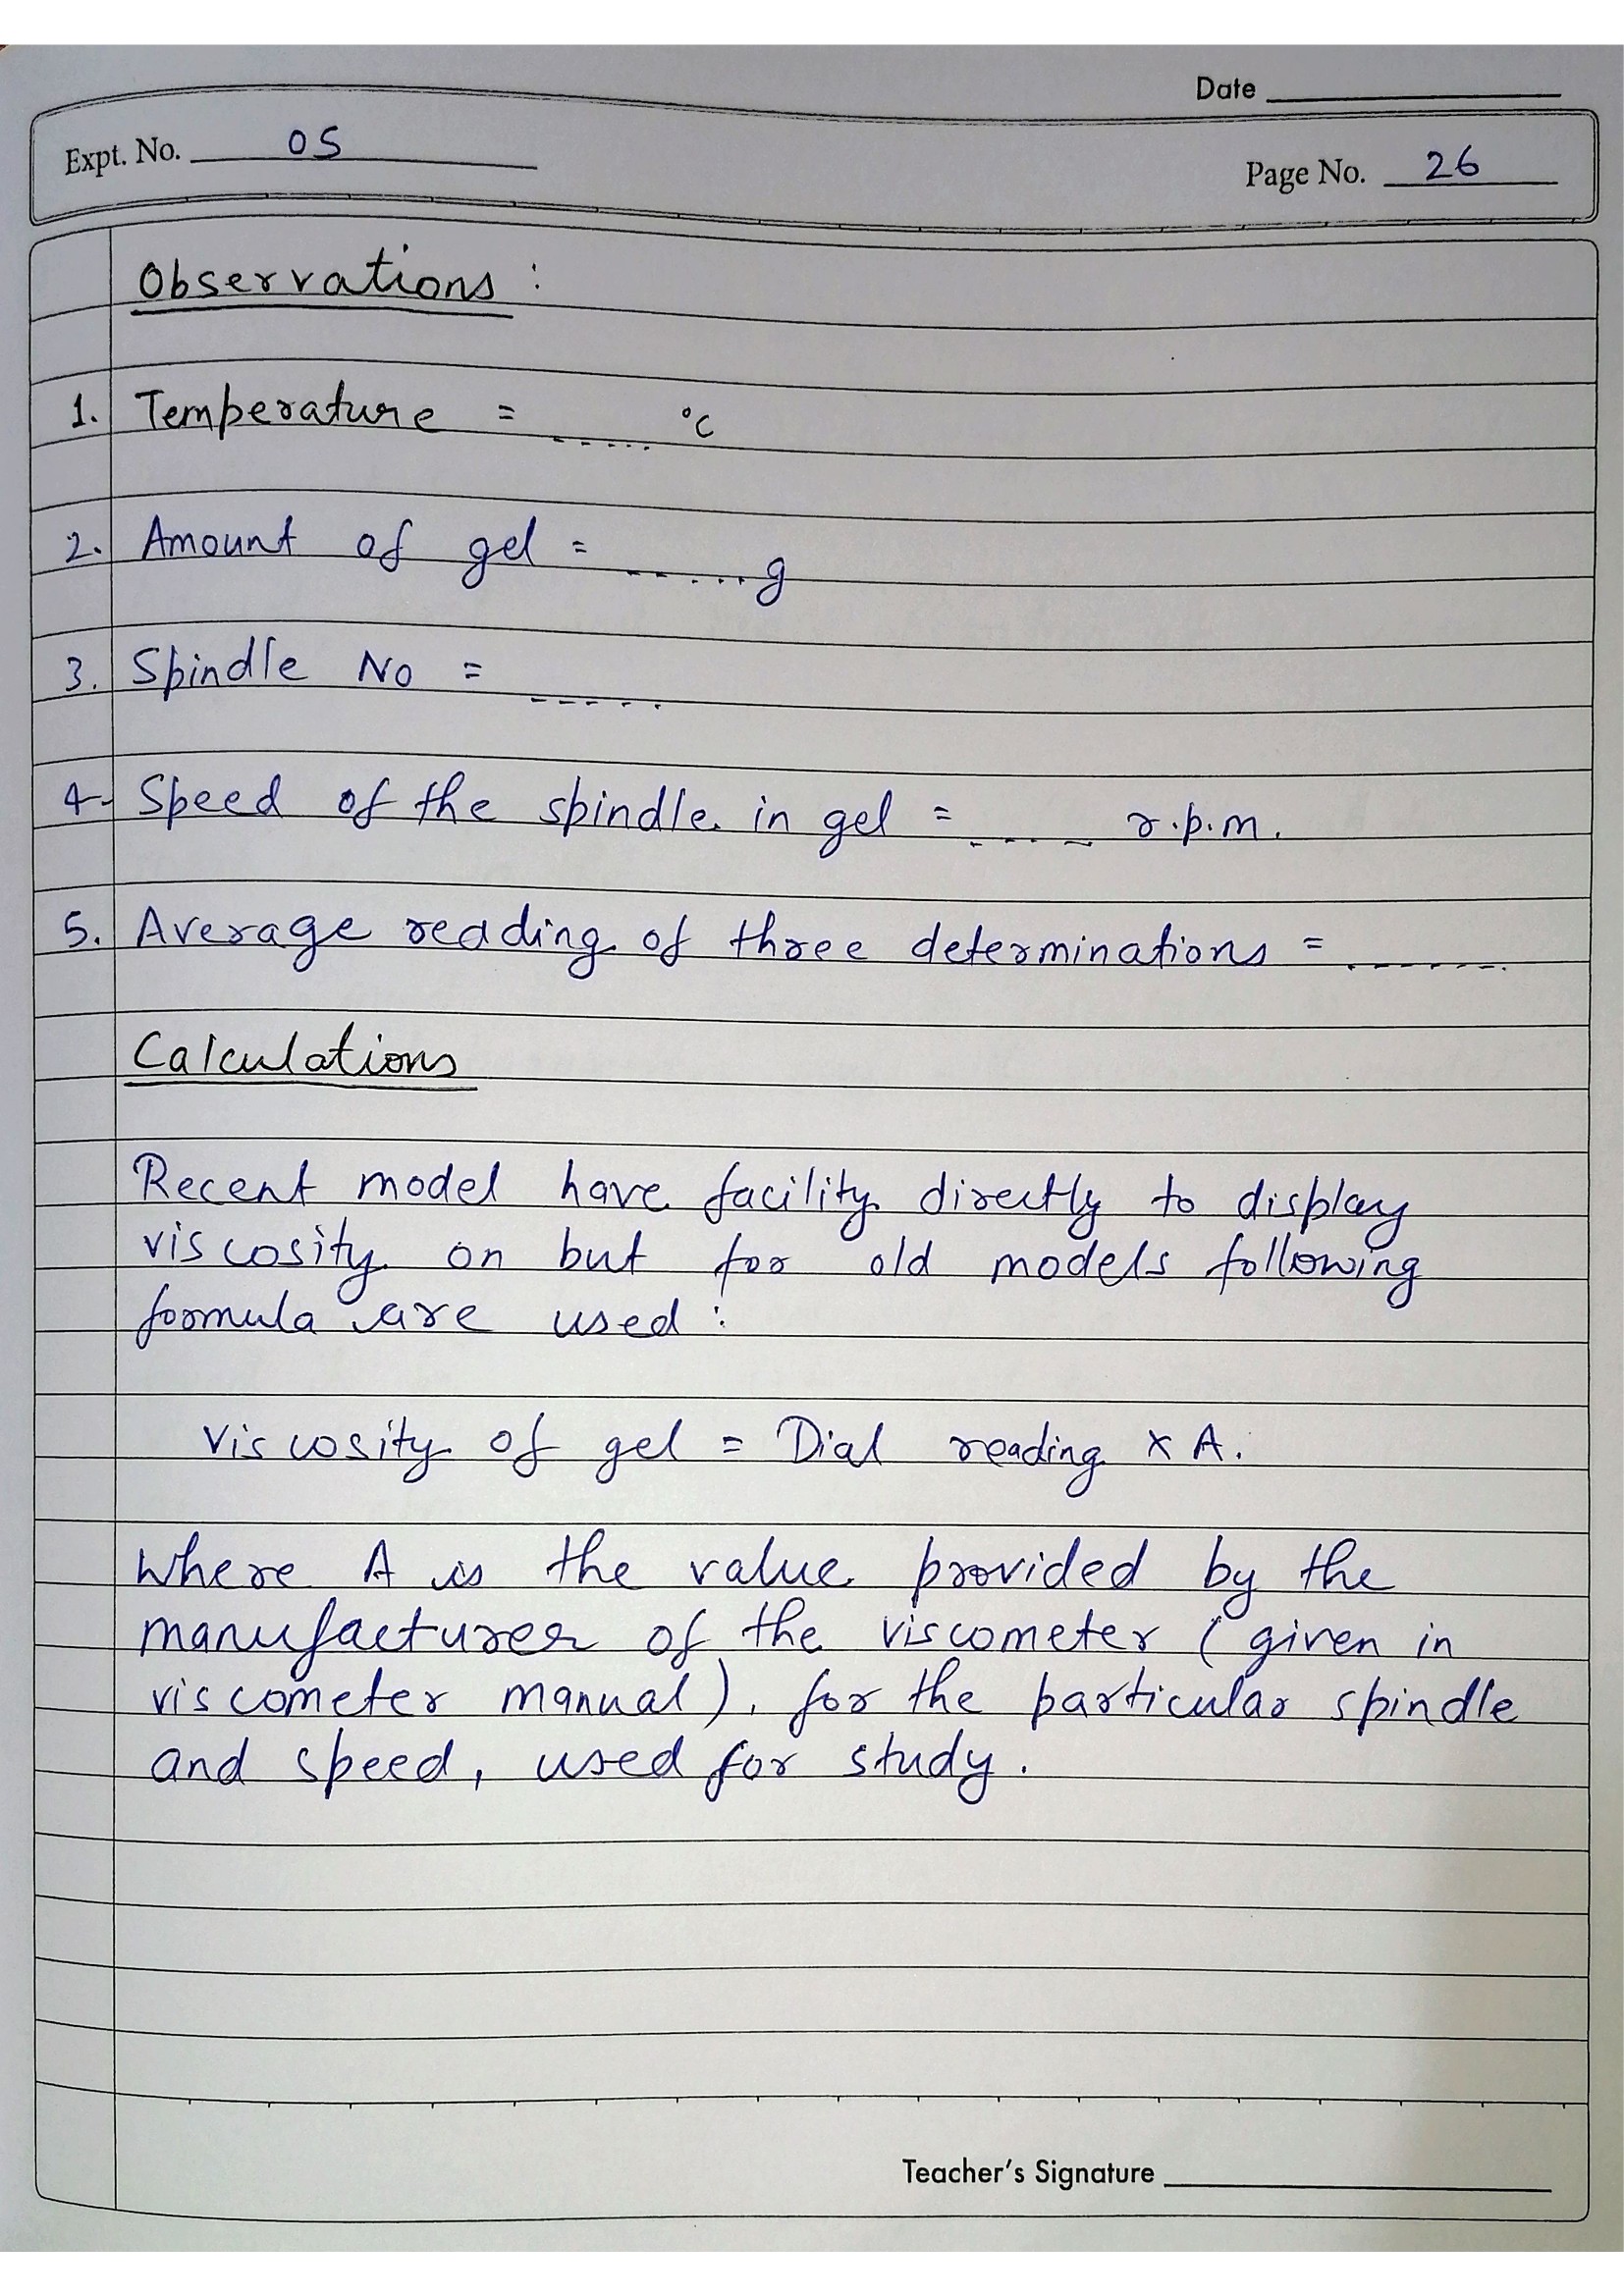 Date
Expt. No. 05
Page No. 26
Observations :
1. Temperature = ..... °C
2. Amount of gel = ...... g
3. Spindle No = .....
4. Speed of the spindle in gel = .... r.p.m.
5. Average reading of three determinations = .......
Calculations
Recent model have facility directly to display
viscosity on but for old models following
formula are used :
Viscosity of gel = Dial reading x A.
Where A is the value provided by the
manufacturer of the viscometer (given in
viscometer manual), for the particular spindle
and speed, used for study.
Teacher's Signature